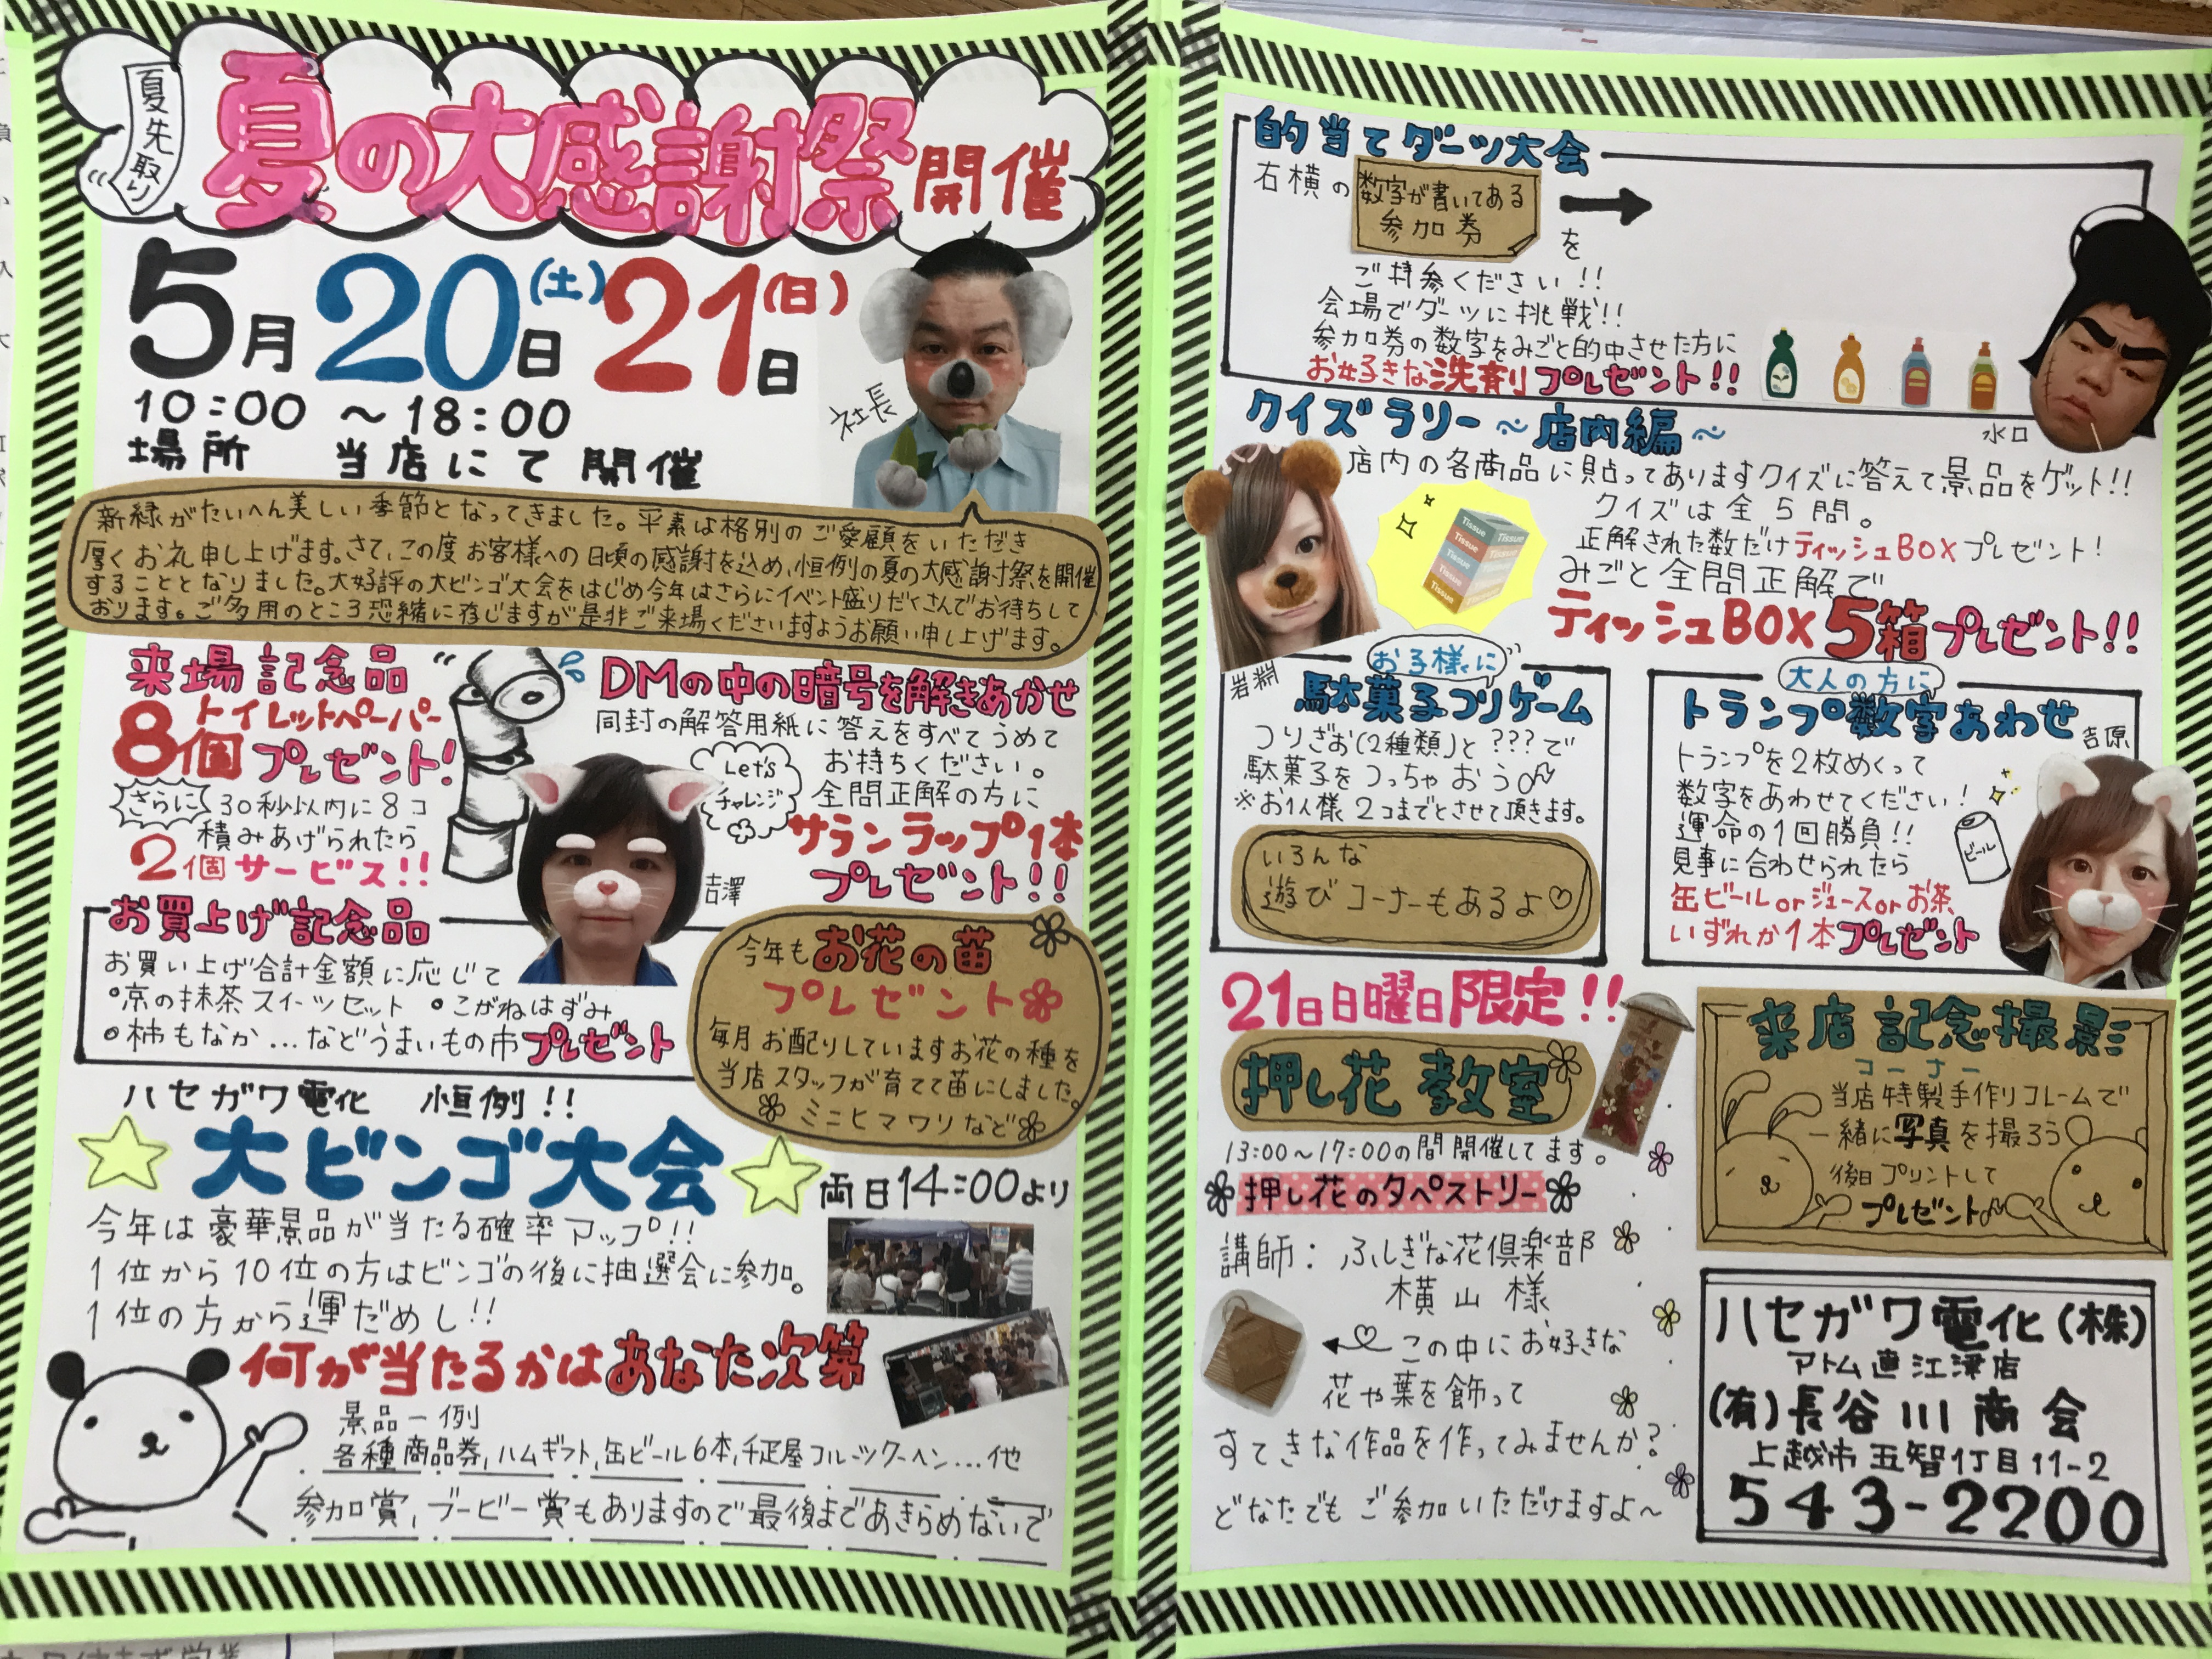 夏先取り
夏の大感謝祭 開催
5月20日(土)21日(日)
10:00 ～18:00
場所 当店にて開催
社長
新緑がたいへん美しい季節となってきました。平素は格別のご愛顧をいただき
厚くお礼申し上げます。さて、この度お客様への日頃の感謝を込め、恒例の夏の大感謝祭を開催
することとなりました。大好評の大ビンゴ大会をはじめ今年はさらにイベント盛りだくさんでお待ちして
おります。ご多用のところ恐縮に存じますが是非ご来場くださいますようお願い申し上げます。
来場記念品
トイレットペーパー
8個プレゼント!
さらに 30秒以内に8コ
積みあげられたら
2個サービス!!
DMの中の暗号を解きあかせ
同封の解答用紙に答えをすべてうめて
お持ちください。
全問正解の方に
Let's
チャレンジ
サランラップ1本
プレゼント!!
吉澤
お買上げ記念品
お買い上げ合計金額に応じて
・京の抹茶スイーツセット ・こがねはずみ
・柿もなか…などうまいもの市プレゼント
今年もお花の苗
プレゼント
毎月お配りしていますお花の種を
当店スタッフが育てて苗にしました。
ミニヒマワリなど
ハセガワ電化 恒例!!
大ビンゴ大会
両日14:00より
今年は豪華景品が当たる確率アップ!!
1位から10位の方はビンゴの後に抽選会に参加。
1位の方から運だめし!!
何が当たるかはあなた次第
景品一例
各種商品券,ハムギフト,缶ビール6本,千疋屋フルーツクーヘン…他
参加賞,ブービー賞もありますので最後まであきらめないで
的当てダーツ大会
右横の 数字が書いてある
参加券
を
ご持参ください!!
会場でダーツに挑戦!!
参加券の数字をみごと的中させた方に
お好きな洗剤プレゼント!!
水口
クイズラリー～店内編～
店内の各商品に貼ってありますクイズに答えて景品をゲット!!
クイズは全5問。
正解された数だけティッシュBOXプレゼント!
みごと全問正解で
ティッシュBOX5箱プレゼント!!
Tissue
Tissue
Tissue
Tissue
Tissue
岩渕
お子様に
駄菓子つりゲーム
つりざお(2種類)と???で
駄菓子をつっちゃおう♪
※お1人様2コまでとさせて頂きます。
いろんな
遊びコーナーもあるよ♡
大人の方に
トランプ数字あわせ
吉原
トランプを2枚めくって
数字をあわせてください!
運命の1回勝負!!
見事に合わせられたら
缶ビールorジュースorお茶、
いずれか1本プレゼント
ビール
21日日曜日限定!!
押し花教室
13:00～17:00の間開催してます。
押し花のタペストリー
講師：ふしぎな花倶楽部
横山様
この中にお好きな
花や葉を飾って
すてきな作品を作ってみませんか?
どなたでもご参加いただけますよ～
来店記念撮影
コーナー
当店特製手作りフレームで
一緒に写真を撮ろう
後日プリントして
プレゼント♪
ハセガワ電化(株)
アトム直江津店
(有)長谷川商会
上越市五智1丁目11-2
543-2200